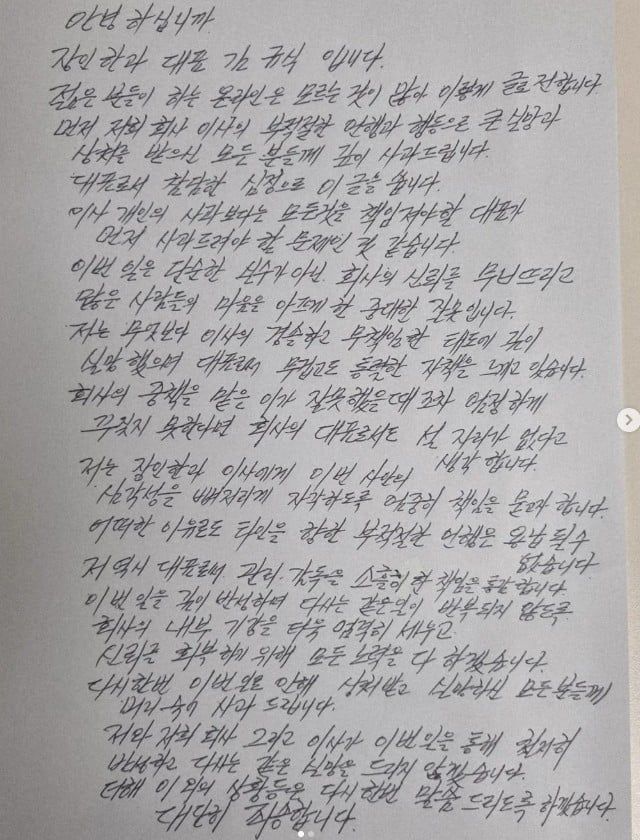 안녕하십니까
장인한과 대표 김규식 입니다.
젊은 분들이 하는 온라인은 모르는 것이 많아 이렇게 글로 전합니다
먼저 저희 회사 이사의 부적절한 언행과 행동으로 큰 실망과
상처를 받으신 모든 분들께 깊이 사과드립니다.
대표로서 참담한 심정으로 이 글을 씁니다.
이사 개인의 사과보다는 모든것을 책임져야할 대표가
먼저 사과드려야 할 문제인 것 같습니다
이번 일은 단순한 실수가 아닌 회사의 신뢰를 무너뜨리고
많은 사람들의 마음을 아프게 한 중대한 잘못입니다.
저는 무엇보다 이사의 경솔하고 무책임한 태도에 깊이
실망했으며 대표로서 무겁고도 통렬한 자책을 느끼고 있습니다.
회사의 중책을 맡은 이가 잘못했을때 조차 엄정하게
꾸짖지 못한다면 회사의 대표로서도 설 자리가 없다고
생각합니다.
저는 장인한과 이사에게 이번 사안의
심각성을 뼈저리게 자각하도록 엄중히 책임을 묻고자 합니다.
어떠한 이유로도 타인을 향한 부적절한 언행은 용납될수
없습니다
저 역시 대표로서 관리·감독을 소홀히 한 책임을 통감합니다
이번 일을 깊이 반성하며 다시는 같은일이 반복되지 않도록
회사의 내부 기강을 더욱 엄격히 세우고
신뢰를 회복하기 위해 모든 노력을 다 하겠습니다.
다시한번 이번일로 인해 상처받고 실망하신 모든분들께
머리숙여 사과 드립니다.
저와 저희 회사 그리고 이사가 이번일을 통해 철저히
반성하고 다시는 같은 실망을 드리지 않겠습니다.
더해 이 외의 상황들은 다시한번 말씀 드리도록 하겠습니다.
대단히 죄송합니다.